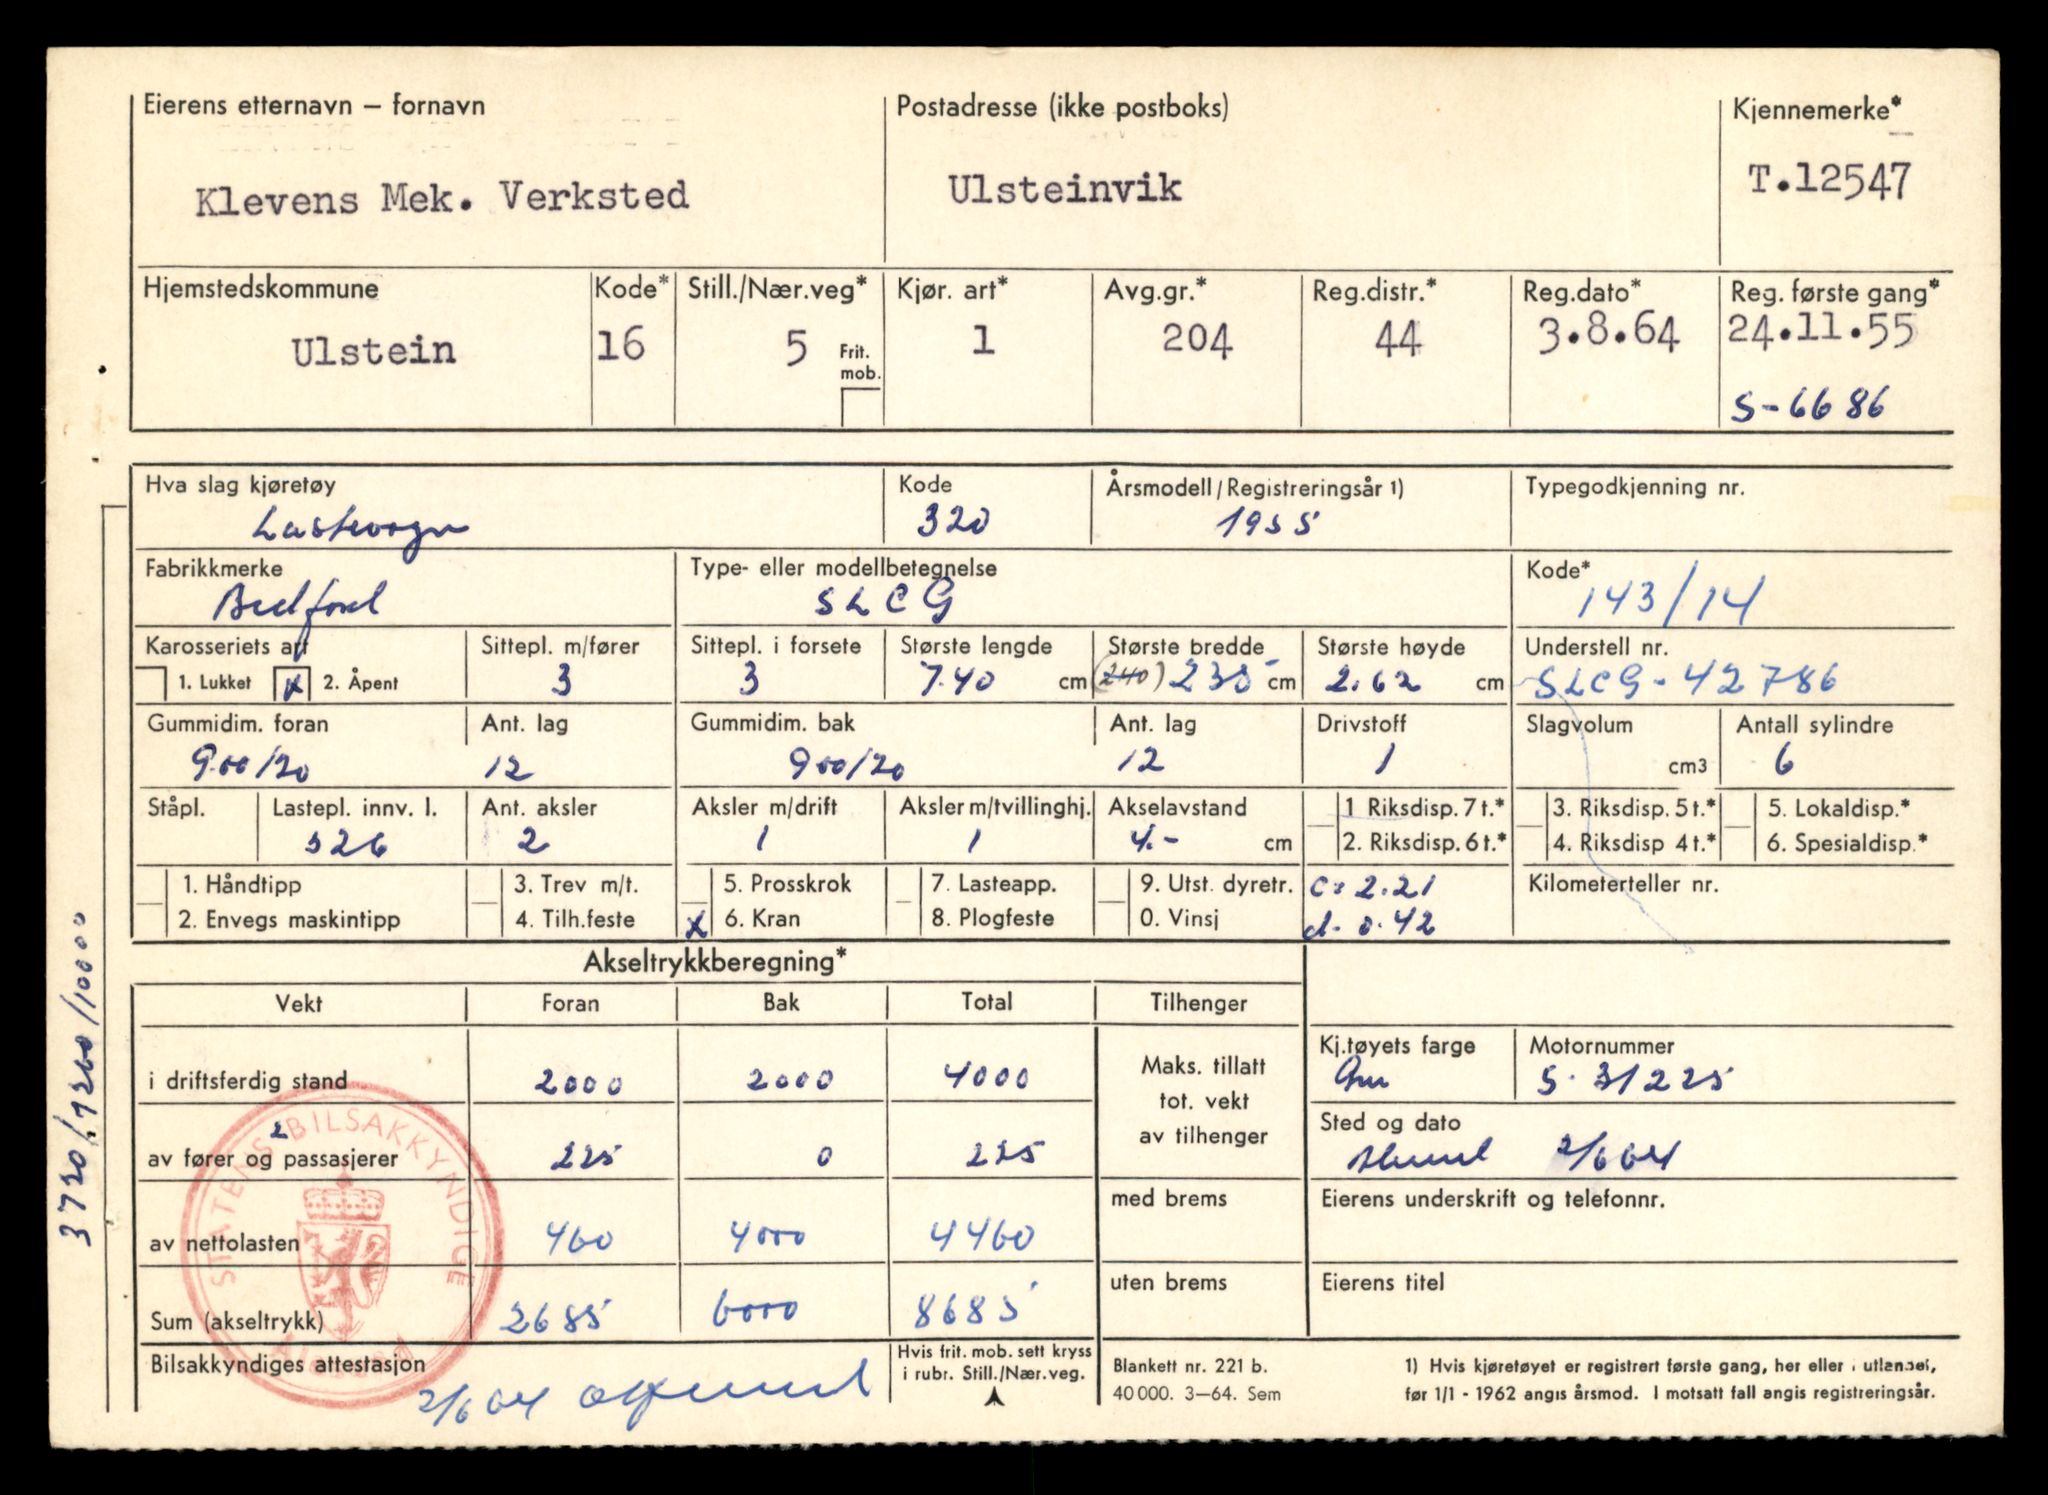 Eierens etternavn – fornavn
Klevens Mek. Verksted
Postadresse (ikke postboks)
Ulsteinvik
Kjennemerke*
T.12547
Hjemstedskommune
Ulstein
Kode*
16
Still./Nær.veg*
5
Frit.
mob.
Kjør. art*
1
Avg.gr.*
204
Reg.distr.*
44
Reg.dato*
3.8.64
Reg. første gang*
24.11.55
S-6686
Hva slag kjøretøy
Lastevogn
Kode
320
Årsmodell/Registreringsår 1)
1955
Typegodkjenning nr.
Fabrikkmerke
Bedford
Type- eller modellbetegnelse
SLCG
Kode*
143/14
Karosseriets art
1. Lukket
x 2. Åpent
Sittepl. m/fører
3
Sittepl. i forsete
3
Største lengde
7.40 cm
Største bredde
(240) 235 cm
Største høyde
2.62 cm
Understell nr.
SLCG-42786
Gummidim. foran
900/20
Ant. lag
12
Gummidim. bak
900/20
Ant. lag
12
Drivstoff
1
Slagvolum
cm3
Antall sylindre
6
Ståpl.
Lastepl. innv. l.
526
Ant. aksler
2
Aksler m/drift
1
Aksler m/tvillinghj.
1
Akselavstand
4.- cm
1 Riksdisp. 7 t.*
2. Riksdisp. 6 t.*
3. Riksdisp. 5 t.*
4. Riksdisp 4 t.*
5. Lokaldisp.*
6. Spesialdisp.*
1. Håndtipp
2. Envegs maskintipp
3. Trev m/t.
4. Tilh.feste
5. Prosskrok
x 6. Kran
7. Lasteapp.
8. Plogfeste
9. Utst. dyretr.
0. Vinsj
c: 2.21
d. 0.42
Kilometerteller nr.
3720/7260/10000
Akseltrykkberegning*
Vekt Foran Bak Total Tilhenger
i driftsferdig stand 2000 2000 4000
2
av fører og passasjerer 225 0 225
av nettolasten 460 4000 4460
Sum (akseltrykk) 2685 6000 8685
Maks. tillatt
tot. vekt
av tilhenger
med brems
uten brems
Kj.tøyets farge
Motornummer
S. 31225
Sted og dato
2/6 64
Eierens underskrift og telefonnr.
Eierens titel
STATENS BILSAKKYNDIGE
ÅLESUND
Bilsakkyndiges attestasjon
2/6 64
Hvis frit. mob. sett kryss
i rubr. Still./Nær.veg.
Blankett nr. 221 b.
40 000. 3–64. Sem
1) Hvis kjøretøyet er registrert første gang, her eller i utlandet,
før 1/1 - 1962 angis årsmod. I motsatt fall angis registreringsår.